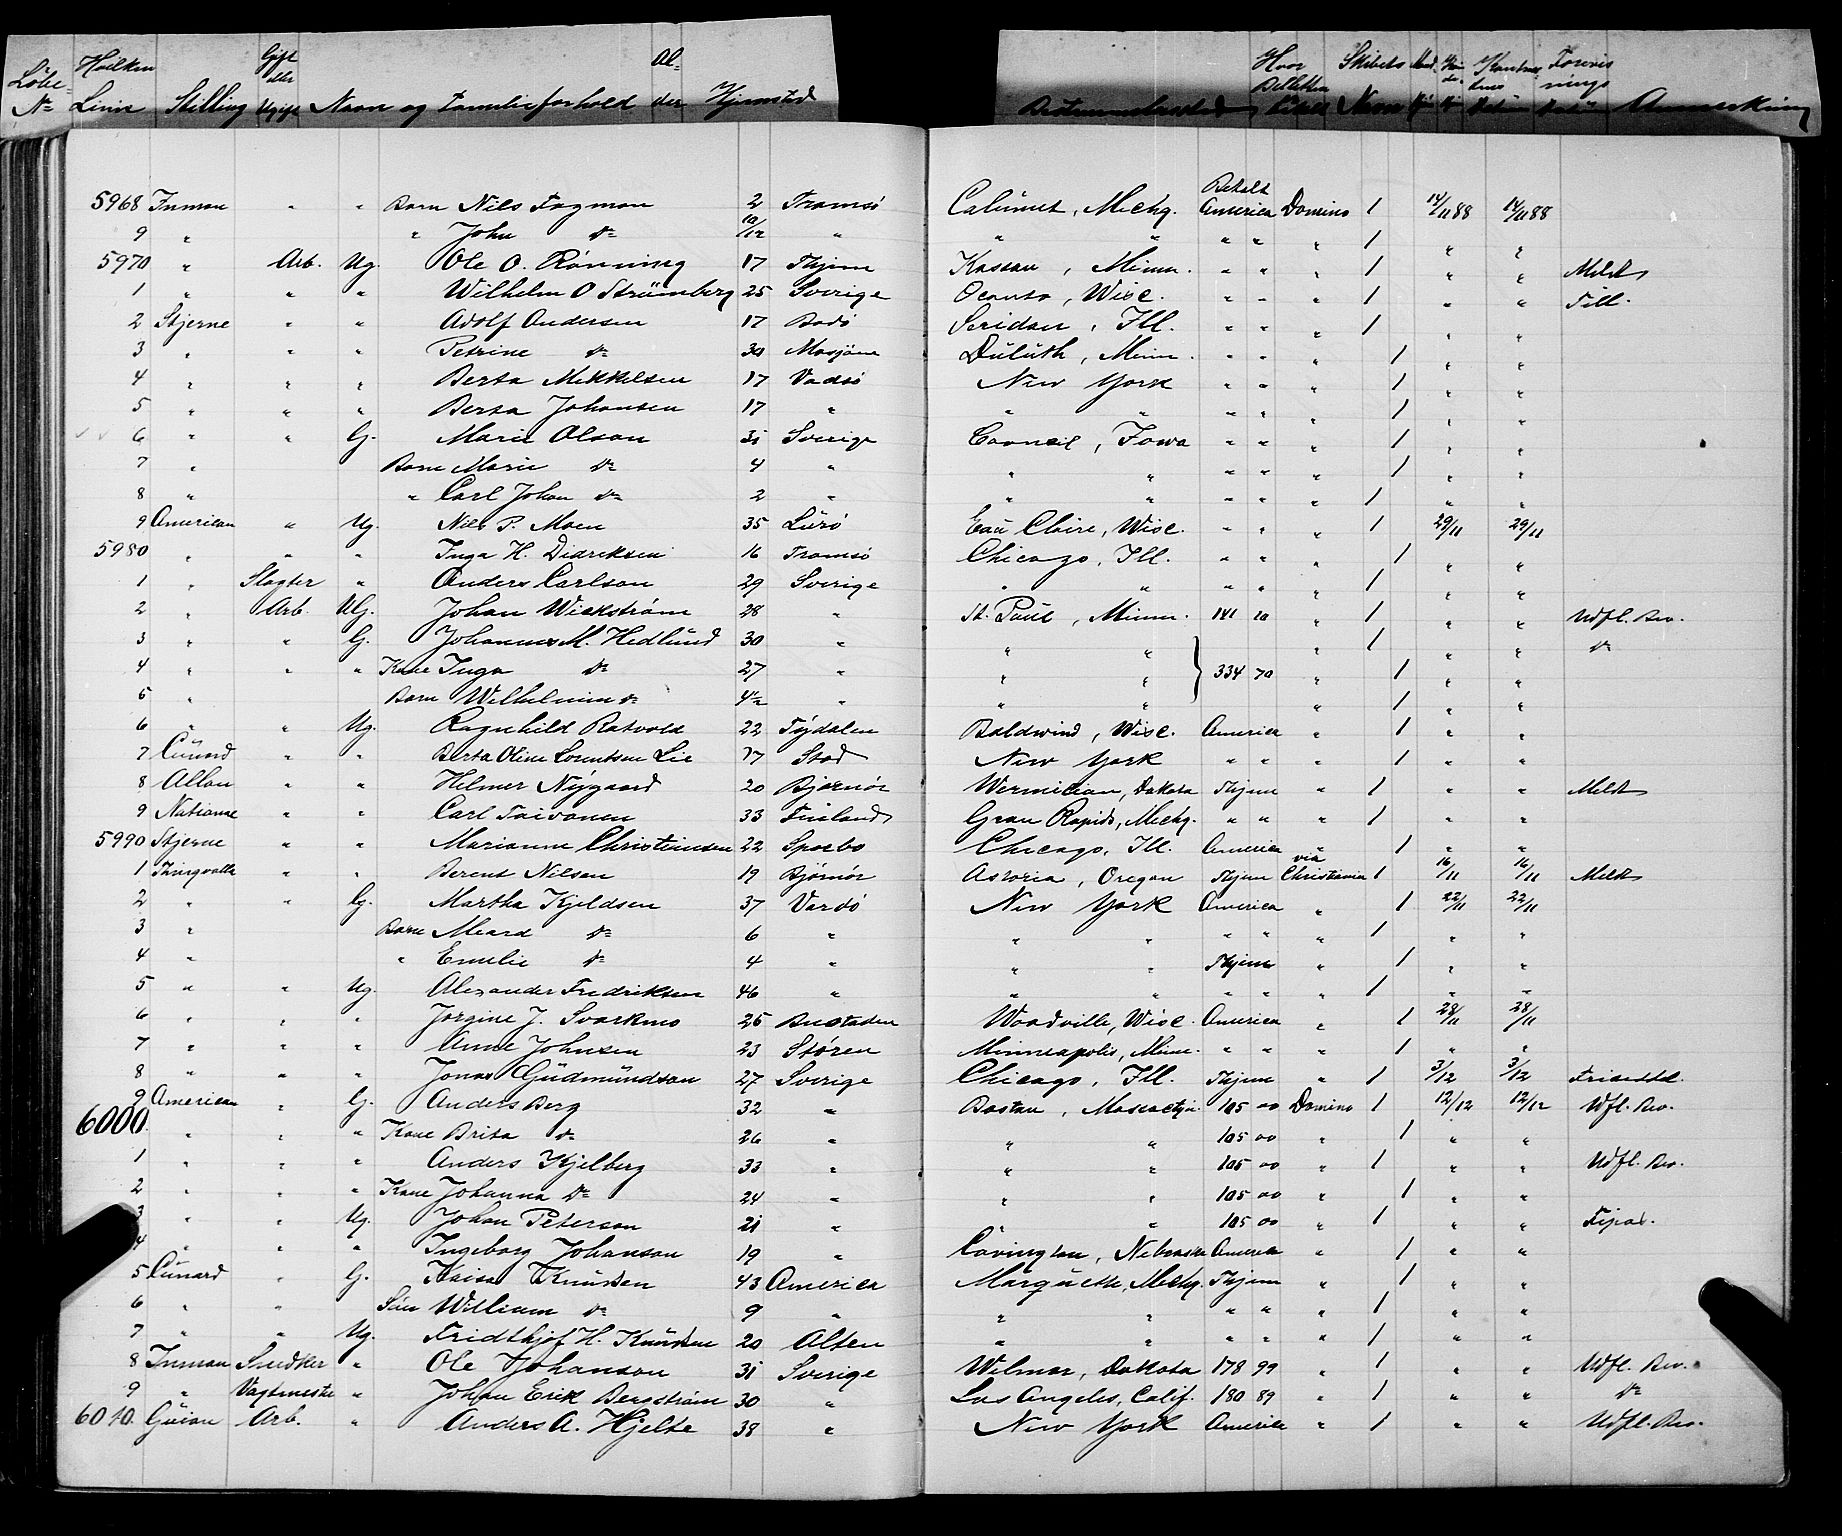 Löbe- Hvilken Gift Al- Hvor Skibets
No Linie Stilling eller Ugift Navn og Familieforhold der Hjemsted Bestemmelsessted Billetten Navn Anmerkning
5968 Inman " " Barn Nils Fagmon 2 Tromsö Calumet, Michg. Betalt America Domino 1 14/11 88 14/11 88
9 " " John do 10/12 " " " " " " 1 " "
5970 " Arb. Ug. Ole O. Rönning 17 Thjem Kasson, Minn. " " " 1 " " Meldt
1 " " " Wilhelm O Strömberg 25 Sverige Oconto, Wisc. " " " 1 " " Till.
2 Stjerne " " Adolf Andersen 17 Bodö Seridan, Ill. " " " 1 " "
3 " " " Petrine do 30 Mosjöen Duluth, Minn. " " " 1 " "
4 " " " Berta Mikkelsen 17 Vadsö New York " " " 1 " "
5 " " " Berta Johansen 17 " " " " " " 1 " "
6 " " G. Marie Olson 31 Sverige Council, Iowa " " " 1 " "
7 " Barn Marie do 4 " " " " " " 1 " "
8 " " Carl Johan do 2 " " " " " " 1 " "
9 American " Ug. Nils P. Moen 35 Lurö Eau Claire, Wisc. " " " 1 29/11 29/11
5980 " " " Inga H. Didriksen 16 Tromsö Chicago, Ill. " " " 1 " "
1 " Slagter " Anders Carlson 29 Sverige " " " " " 1 " "
2 " Arb. UG. Johan Wickström 28 " St. Paul, Minn. 141 20 " 1 " " Udfl. Bev.
3 " " G. Johannes M. Hedlund 30 " " " " 1 " " do
4 " " " Kone Inga do 27 " " " 334 70 " 1 " "
5 " Barn Wilhelmine do 4½ " " " " 1 " "
6 " " Ug. Ragnhild Rotvold 22 Tydalen Baldwind, Wisc. America " 1 " "
7 Cunard " " Berta Oline Lorentsen Lie 17 Stod New York " " " 1 " "
8 Allan " " Helmer Nygaard 20 Bjørnør Wermilian, Dakota Thjem " 1 " " Meldt
9 Nationale " " Carl Taivonen 33 Finland Gran Rapids, Mechg. " " " 1 " "
5990 Stjerne " " Marianne Christiansen 22 Sparbo Chicago, Ill. America " 1 " "
1 Thingvalla " " Berent Nilsen 19 Bjørnør Astoria, Oregon Thjem via Christiania 1 16/11 16/11 Meldt
2 " " G. Martha Kjeldsen 37 Vardö New York America " 1 22/11 22/11
3 " Barn Meard do 6 " " " " " " 1 " "
4 " " Emelie do 4 " " " Thjem " 1 " "
5 " " Ug. Alexander Fredriksen 46 " " " " " " 1 " "
6 " " " Jørgine J. Svarkmo 25 Bustaden Woodville, Wisc. America " 1 28/11 28/11
7 " " " Anne Johnsen 23 Støren Minneapolis, Minn. " " " 1 " "
8 " " " Jonas Gudmundson 27 Sverige Chicago, Ill. Thjem " 1 3/12 3/12
9 American " G. Anders Berg 32 " Boston, 105 00 Domino 1 12/12 12/12 Udfl. Bev.
6000 " " " Kone Brita do 26 " " " 105 00 " 1 " "
1 " " " Anders Kjelberg 33 " " " 105 00 " 1 " " Udfl. Bev.
2 " " " Kone Johanna do 24 " " " 105 00 " 1 " "
3 " " Ug. Johan Peterson 21 " " 105 00 " 1 " "
4 " " " Ingeborg Johanson 19 " Covington, Nebraska America " 1 " "
5 Cunard " G. Kaisa Knudsen 43 America Marquette, Mechg. Thjem " 1 " "
6 " " Sön William do 9 " " " " " " 1 " "
7 " " Ug. Fridthjof H. Knudsen 20 Alten " " " " " 1 " "
8 Inman Snedker " Ole Johanson 31 Sverige Wilmar, Dakota 178 99 " 1 " " Udfl. Bev.
9 " Vagtmester " Johan Erik Bergström 30 " Los Angeles, Calif. 180 89 " 1 " " do
6010. Guion Arb. " Anders A. Hjelte 38 " New York America " 1 " " Udfl. Bev.